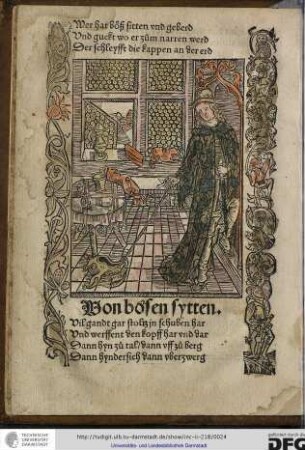 Wer hat böß sitten vnd geberd
Vnd guckt wo er zům narren werd
Der schleyfft die kappen an der erd
Von bösen sytten.
Vil gandt gar stoltz jn schuben har
Vnd werffent den kopff har vnd dar
Dann hyn zů tal / dann vff zů berg
Dann hyndersich dann vberzwerg
TECHNISCHE
UNIVERSITÄT
DARMSTADT
http://tudigit.ulb.tu-darmstadt.de/show/inc-ii-218/0024
Universitäts- und Landesbibliothek Darmstadt
gefördert durch die
DFG